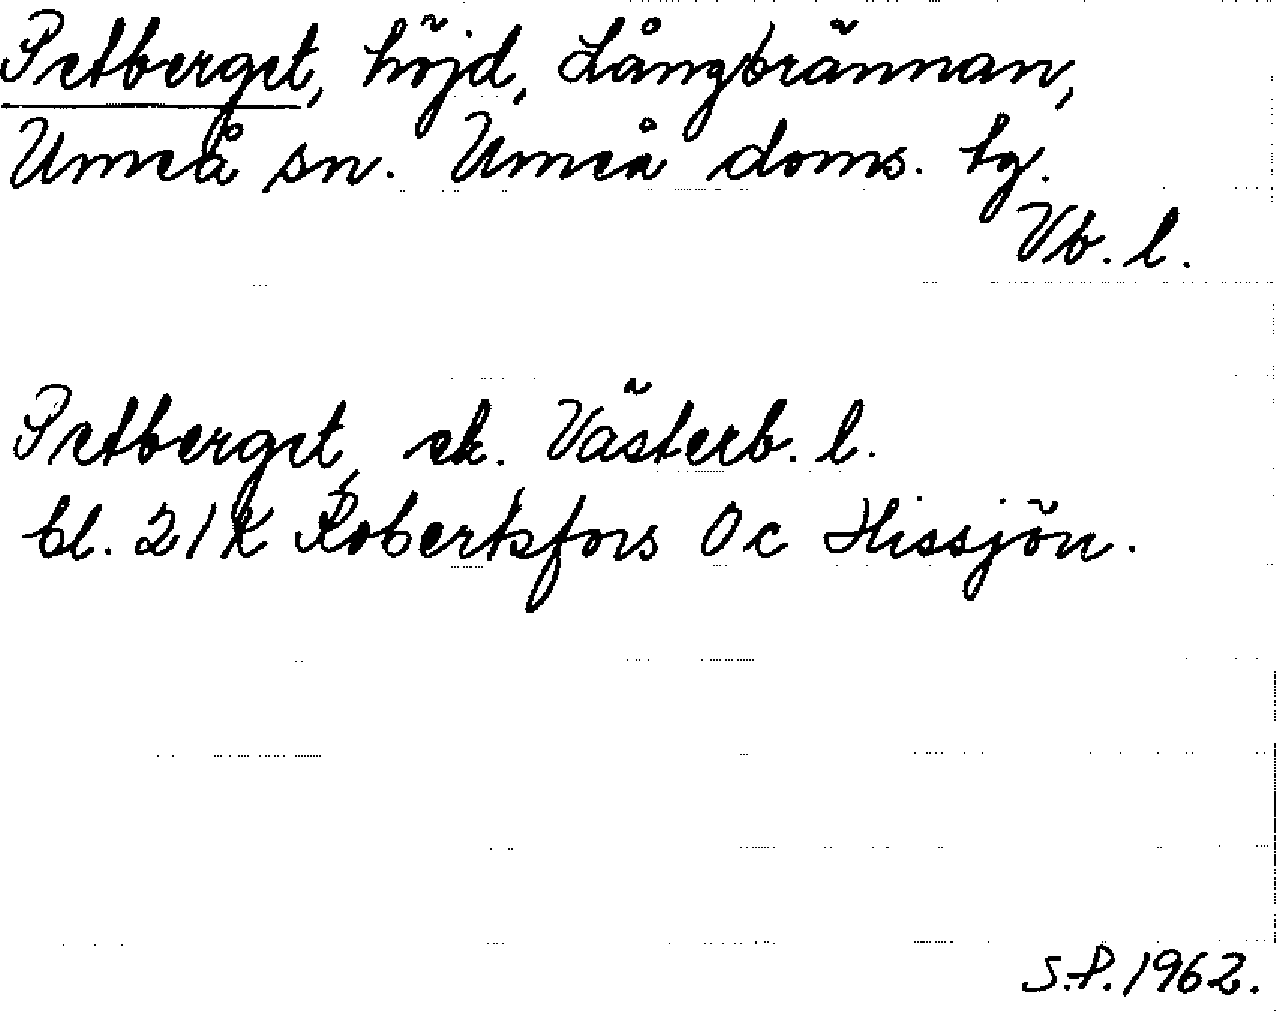 Petberget, höjd, Långbrännan,
Umeå sn. Umeå doms. tg.
Vb. l.
Petberget, ek. Västerb. l.
bl. 21K Robertsfors 0c Hissjön.
S.P. 1962.